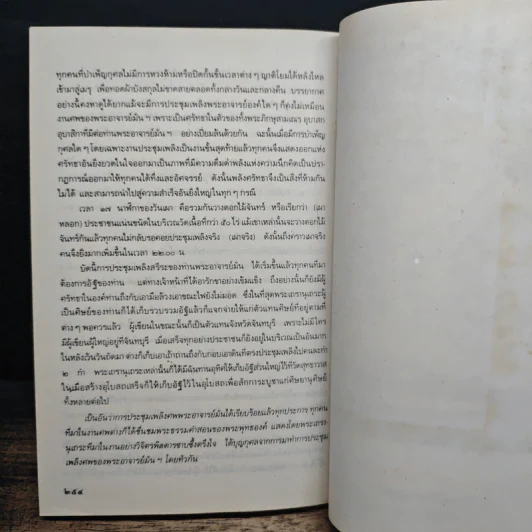 ทุกคนที่บำเพ็ญกุศลไม่มีการหวงห้ามหรือปิดกั้นชั้นเวลาต่าง ๆ ญาติโยมได้หลั่งไหล
เข้ามาสู่เมรุ เพื่อทอดผ้าบังสุกุลไม่ขาดสายตลอดทั้งกลางวันและกลางคืน บรรยากาศ
อย่างนี้คงหาดูได้ยากแม้จะมีการประชุมเพลิงพระอาจารย์องค์ใด ๆ ก็คงไม่เหมือน
งานศพของพระอาจารย์มั่น ฯ เพราะเป็นศรัทธาในตัวของทั้งพระภิกษุสามเณร อุบาสก
อุบาสิกาที่มีต่อท่านพระอาจารย์มั่น ฯ อย่างเปี่ยมล้นด้วยกัน ฉะนั้นเมื่อมีการบำเพ็ญ
กุศลใด ๆ โดยเฉพาะงานประชุมเพลิงเป็นงานขั้นสุดท้ายแล้วทุกคนจึงแสดงออกแห่ง
ศรัทธาอันยิ่งยวดในใจออกมาเป็นภาพที่มีความดื่มด่ำพลังแห่งความนึกคิดเป็นปรา-
กฏการณ์ออกมาให้ทุกคนได้ทึ่งและอัศจรรย์ ดังนั้นพลังศรัทธาจึงเป็นสิ่งที่ห้ามกัน
ไม่ได้ และสามารถนำไปสู่ความสำเร็จอันยิ่งใหญ่ในทุก ๆ กรณี
เวลา ๑๗ นาฬิกาของวันเผา คือรวมกันวางดอกไม้จันทร์ หรือเรียกว่า (เผา
หลอก) ประชาชนแน่นขนัดในบริเวณวัดเนื้อที่กว่า ๕๐ ไร่ แม้เขาเหล่านั้นจะวางดอกไม้
จันทร์กันแล้วทุกคนไม่กลับรอคอยประชุมเพลิงจริง (เผาจริง) ดังนั้นถึงคราวเผาจริง
คนจึงยิ่งมากเพิ่มขึ้นในเวลา ๒๒.๐๐ น.
บัดนี้การประชุมเพลิงสรีระของท่านพระอาจารย์มั่น ได้เริ่มขึ้นแล้วทุกคนที่มา
ต้องการอัฐิของท่าน แต่ทางเจ้าหน้าที่ได้อารักขาอย่างเข้มแข็ง ถึงอย่างนั้นก็ยังมีผู้
ศรัทธาในองค์ท่านถึงกับเอามือล้วงเอาขณะไฟยังไม่มอด ซึ่งในที่สุดพระเถรานุเถระผู้
เป็นศิษย์ของท่านก็ได้เก็บรวบรวมอัฐิแล้วก็แจกจ่ายให้แก่ตัวแทนศิษย์ที่อยู่ตามที่
ต่าง ๆ พอควรแล้ว ผู้เขียนในขณะนั้นก็เป็นตัวแทนจังหวัดจันทบุรี เพราะไม่มีใคร
มีผู้เขียนผู้ใหญ่อยู่ที่จันทบุรี เมื่อเสร็จทุกอย่างประชาชนก็ยังอยู่ในบริเวณเป็นอันมาก
ในหลังวันวันถัดมา ต่างก็เก็บเอาเถ้าถ่านถึงกับกอบเอาดินที่ตรงประชุมเพลิงไปคนละกำ
๒ กำ พระเถรานุเถระเหล่านั้นก็ได้มีฉันทานุมัติให้เก็บอัฐิส่วนใหญ่ไว้ที่วัดสุทธาวาส
ในเมื่อสร้างอุโบสถเสร็จก็ให้เก็บอัฐิไว้ในอุโบสถเพื่อสักการะบูชาแก่ศิษยานุศิษย์
ทั้งหลายต่อไป
เป็นอันว่าการประชุมเพลิงศพพระอาจารย์มั่นได้เรียบร้อยแล้วทุกประการ ทุกคน
ที่มาในงานศพต่างก็ได้ชื่นชมพระธรรมคำสอนของพระพุทธองค์ แสดงโดยพระเถรา-
นุเถระที่มาในงานอย่างวิจิตรพิสดารซาบซึ้งตรึงใจ ได้บุญกุศลจากการมาทำการประชุม
เพลิงศพของพระอาจารย์มั่น ฯ โดยทั่วกัน
๒๕๔